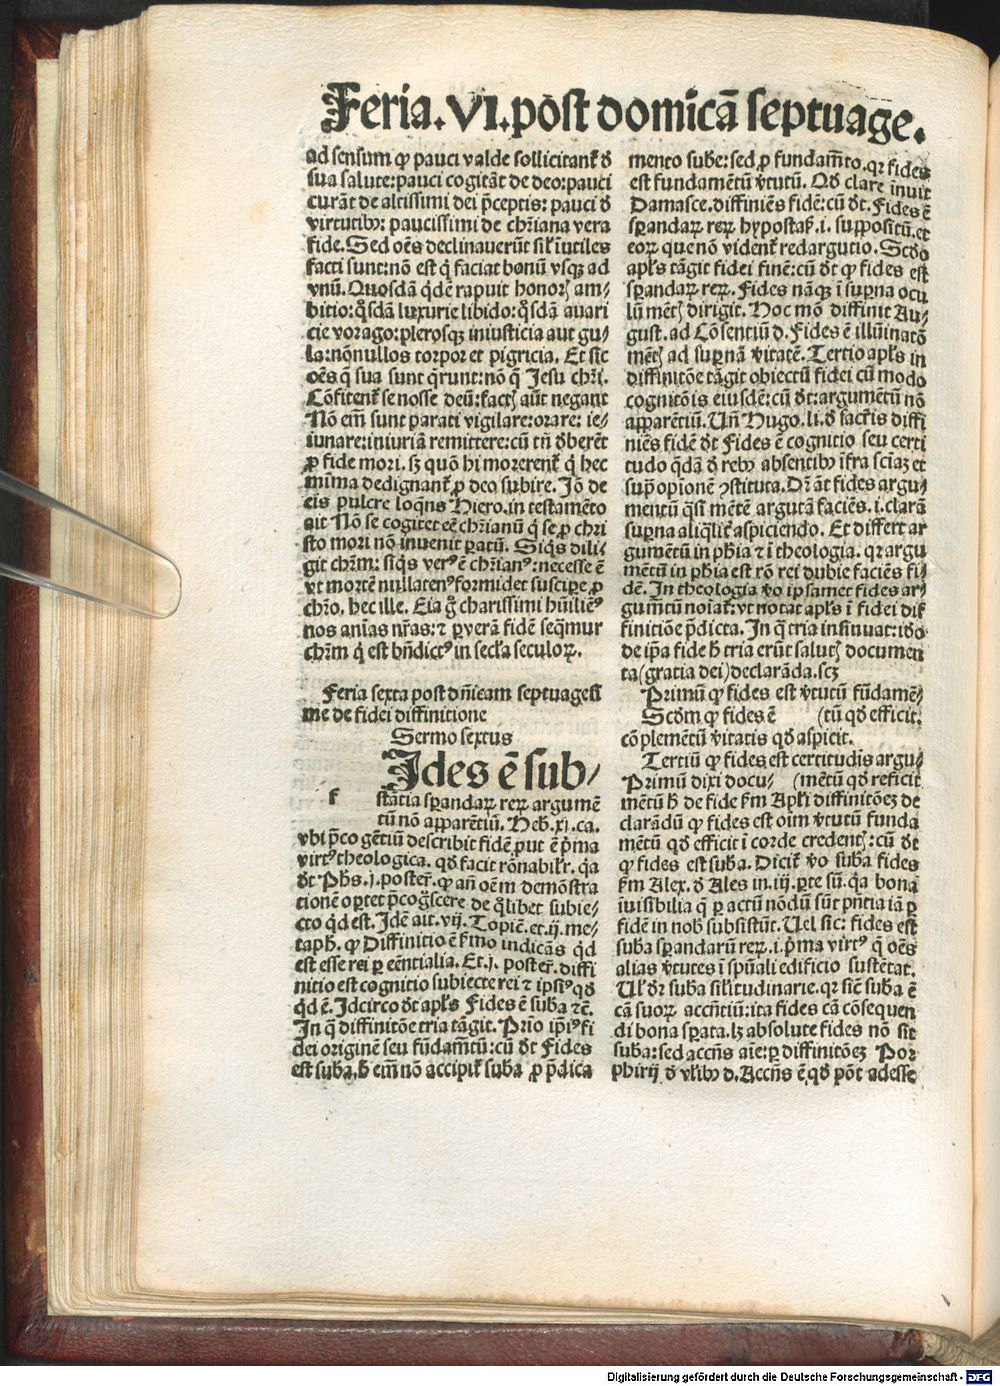 Feria.VI.post domicā septuage.
ad sensum ꝙ pauci valde sollicitant̃ ď
sua salute: pauci cogitāt de deo: pauci
curāt de altissimi dei p̄ceptis: pauci ď
virtutibꝫ: paucissimi de chr̄iana vera
fide. Sed oēs declinauerūt sil̓ īutiles
facti sunt: nō est q̇ faciat bonū vsqꝫ ad
vnū. Quosdā q̇dē rapuit honorꝭ am-
bitio: q̊sdā luxurie libido: q̊sdā auari
cie vorago: plerosqꝫ iniusticia aut gu/
la: nōnullos torpor et pigricia. Et sic
oēs q̄ sua sunt q̄runt: nō q̄ Jesu chr̄i.
Cōfitent̃ se nosse deū: factꝭ aūt negant
Nō em̄ sunt parati vigilare: orare: ie/
iunare: iniuriā remittere: cū tn̄ ďberēt
ꝓ fide mori. sꝫ quō hi morerent̃ q̇ hec
mīma dedignant̃ ꝓ deo subire. Jō de
eis pulcre loq̄ns Hiero. in testamēto
ait Nō se cogitet eē chr̄ianū q̇ se ꝓ chri
sto mori nō inuenit ꝑatū. Siq̇s dili/
git chr̄m: siq̇s verꝰ ē chr̄ianꝰ: necesse ē
vt mortē nullatenꝰ formidet suscipe ꝓ
chr̄o. hec ille. Eia g̊ charissimi hūiliēꝰ
nos anīas nr̄as: ⁊ ꝑ verā fidē seq̄mur
chr̄m q̇ est bn̄dictꝰ in secl̓a seculoꝝ.
Feria sexta post dn̄icam septuagesi
me de fidei diffinitione
Sermo sextus
f
Jdes ē sub/
stātia sꝑandaꝝ reꝝ argumē
tū nō apparētiū. Heb̓. xj. ca.
vbi p̄co gētiū describit fidē put ē p̓ma
virtꝰ theologica. qď facit rōnabilr̓. q̇a
ďt Ph̓s. j. poster̓. ꝙ añ oēm demōstra
tionē oꝑtet p̄cog̊scere de q̊libet subie/
cto q̇d est. Jdē ait. vij. Topiē. et. ij. me/
taph̓. ꝙ Diffinitio ē f̓mo indicās q̇d
est esse rei ꝑ eēntialia. Et. j. poster̓. diffi
nitio est cognitio subiecte rei ⁊ ipsiꝰ qď
q̇d ē. Jdcirco ďt apl̓s Fides ē sub̓a ⁊c̄.
Jn q̄ diffinitōe tria tāgit. Prīo ip̄iꝰ fi
dei originē seu fūdam̄tū: cū ďt Fides
est sub̓a. h̓ em̄ nō accipit̃ sub̓a ꝓ p̄dica
mento sub̓e: sed ꝓ fundam̄to. qꝛ fides
est fundamētū v̓tutū. Qď clare inuit
Damasce. diffiniēs fidē: cū ďt. Fides ē
sꝑandaꝝ reꝝ hypostas̓. i. suppositū. et
eoꝝ que nō vident̃ redargutio. Scďo
apl̓s tāgit fidei finē: cū ďt ꝙ fides est
sꝑandaꝝ reꝝ. Fides nāqꝫ ī suꝑna ocu
lū mētꝭ dirigit. Hoc mō diffinit Au/
gust. ad Cōsentiū d. Fides ē illūinatō
mētꝭ ad suꝑnā v̓itatē. Tertio apl̓s in
diffinitōe tāgit obiectū fidei cū modo
cognitōis eiusdē: cū ďt: argumētū nō
apparētiū. Un̄ Hugo. li. ď sacr̄is diffi
niēs fidē ďt Fides ē cognitio seu certi
tudo q̄dā ď rebꝫ absentibꝫ īfra scīaꝫ et
sup̄ opīonē ꝯstituta. Dr̄ āt fides argu/
mentū q̄si mētē argutā faciēs. i. clarā
suꝑna aliq̄lit̃ aspiciendo. Et differt ar
gumētū in ph̓ia ⁊ ī theologia. qꝛ argu
mētū in ph̓ia est rō rei dubie faciēs fi/
dē. Jn theologia v̓o ip̄samet fides ar/
gum̄tū noīat̃: vt notat apl̓s ī fidei dif
finitiōe p̄dicta. Jn q̄ tria insinuat: iďo
de ip̄a fide h̓ tria erūt salutꝭ documen
ta (gratia dei) declarāda. scꝫ
Primū ꝙ fides est v̓tutū fūdamē/
Scďm ꝙ fides ē (tū qď efficit.
cōplemētū v̓itatis qď aspicit.
Tertiū ꝙ fides est certitudīs argu/
Primū dixi docu/ (mētū qď reficit
mētū h̓ de fide f̓m Apl̓i diffinitōeꝫ de
clarādū ꝙ fides est oīm v̓tutū funda
mētū qď efficit ī corde credentꝭ: cū ďt
ꝙ fides est sub̓a. Dicit̃ v̓o sub̓a fides
f̓m Alex. ď Ales in. iij. ꝑte sū. q̇a bona
īuisibilia q̄ ꝑ actū nōdū sūt p̄ntia iā ꝑ
fidē in nob̓ subsistūt. Uel sic: fides est
sub̓a sꝑandarū reꝝ. i. p̓ma virtꝰ q̄ oēs
alias v̓tutes ī spūali edificio sustētat.
Ul̓ dr̄ sub̓a sil̓itudinarie. qꝛ sic̄ sub̓a ē
cā suoꝝ accn̄tiū: ita fides cā cōsequen
di bona sꝑata. lꝫ absolute fides nō sit
sub̓a: sed accn̄s aīe: ꝑ diffinitōeꝫ Por
phirij ď vl̓ibꝫ d. Accn̄s ē qď pōt adesse
Digitalisierung gefördert durch die Deutsche Forschungsgemeinschaft - DFG